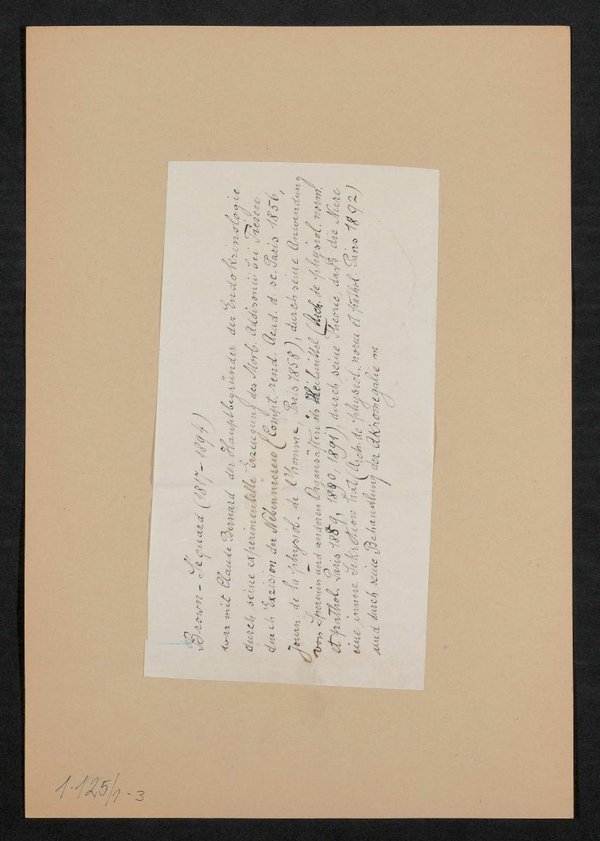 Brown-Séquard (1817-1894)
war mit Claude Bernard der Hauptbegründer der Endokrinologie
durch seine experimentelle Erzeugung des Morb. Addisonii bei Tieren
durch Exzision der Nebennieren (Compt. rend. Acad. d. sc. Paris 1856,
Journ. de la physiol. de l'homme, Paris 1858), durch seine Anwendung
von Spermin und anderen Organsäften als Heilmittel (Arch. de physiol. norm.
et pathol. Paris 1889, 1890, 1891), durch seine Theorie, daß die Niere
eine innere Sekretion hat (Arch. de physiol. norm. et pathol. Paris 1892)
und durch seine Behandlung der Akromegalie m
1.125/1-3